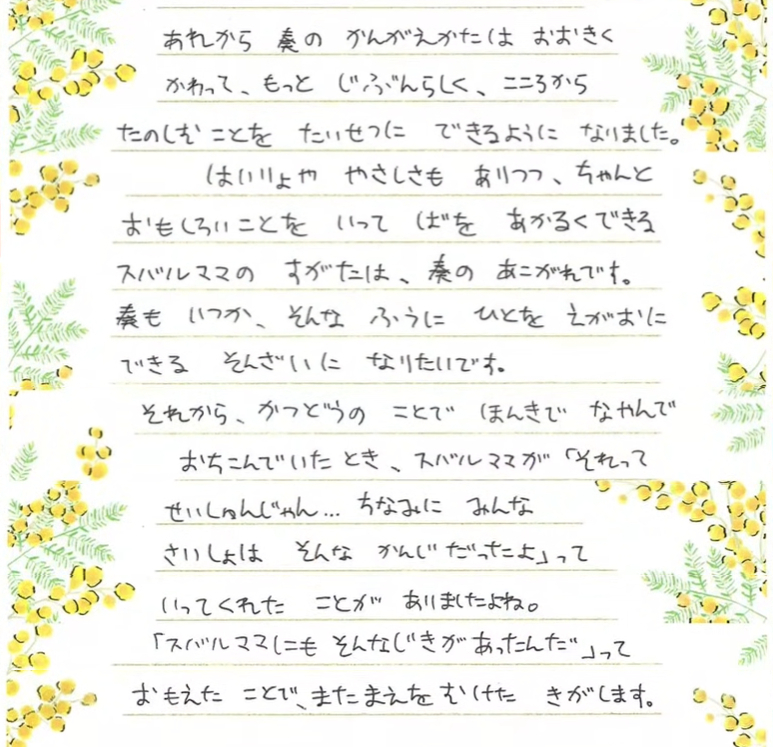 あれから 奏の かんがえかたは おおきく
かわって、もっと じぶんらしく、こころから
たのしむ ことを たいせつに できるように なりました。
はいりょや やさしさも ありつつ、ちゃんと
おもしろいことを いって ばを あかるくできる
スバルママの すがたは、奏の あこがれです。
奏も いつか、そんな ふうに ひとを えがおに
できる そんざいに なりたいです。
それから、かつどうの ことで ほんきで なやんで
おちこんでいた とき、スバルママが「それって
せいしゅんじゃん... ちなみに みんな
さいしょは そんな かんじ だったよ」って
いってくれた ことが ありましたよね。
「スバルママにも そんなじきが あったんだ”」って
おもえた ことで、また まえを むけた きがします。